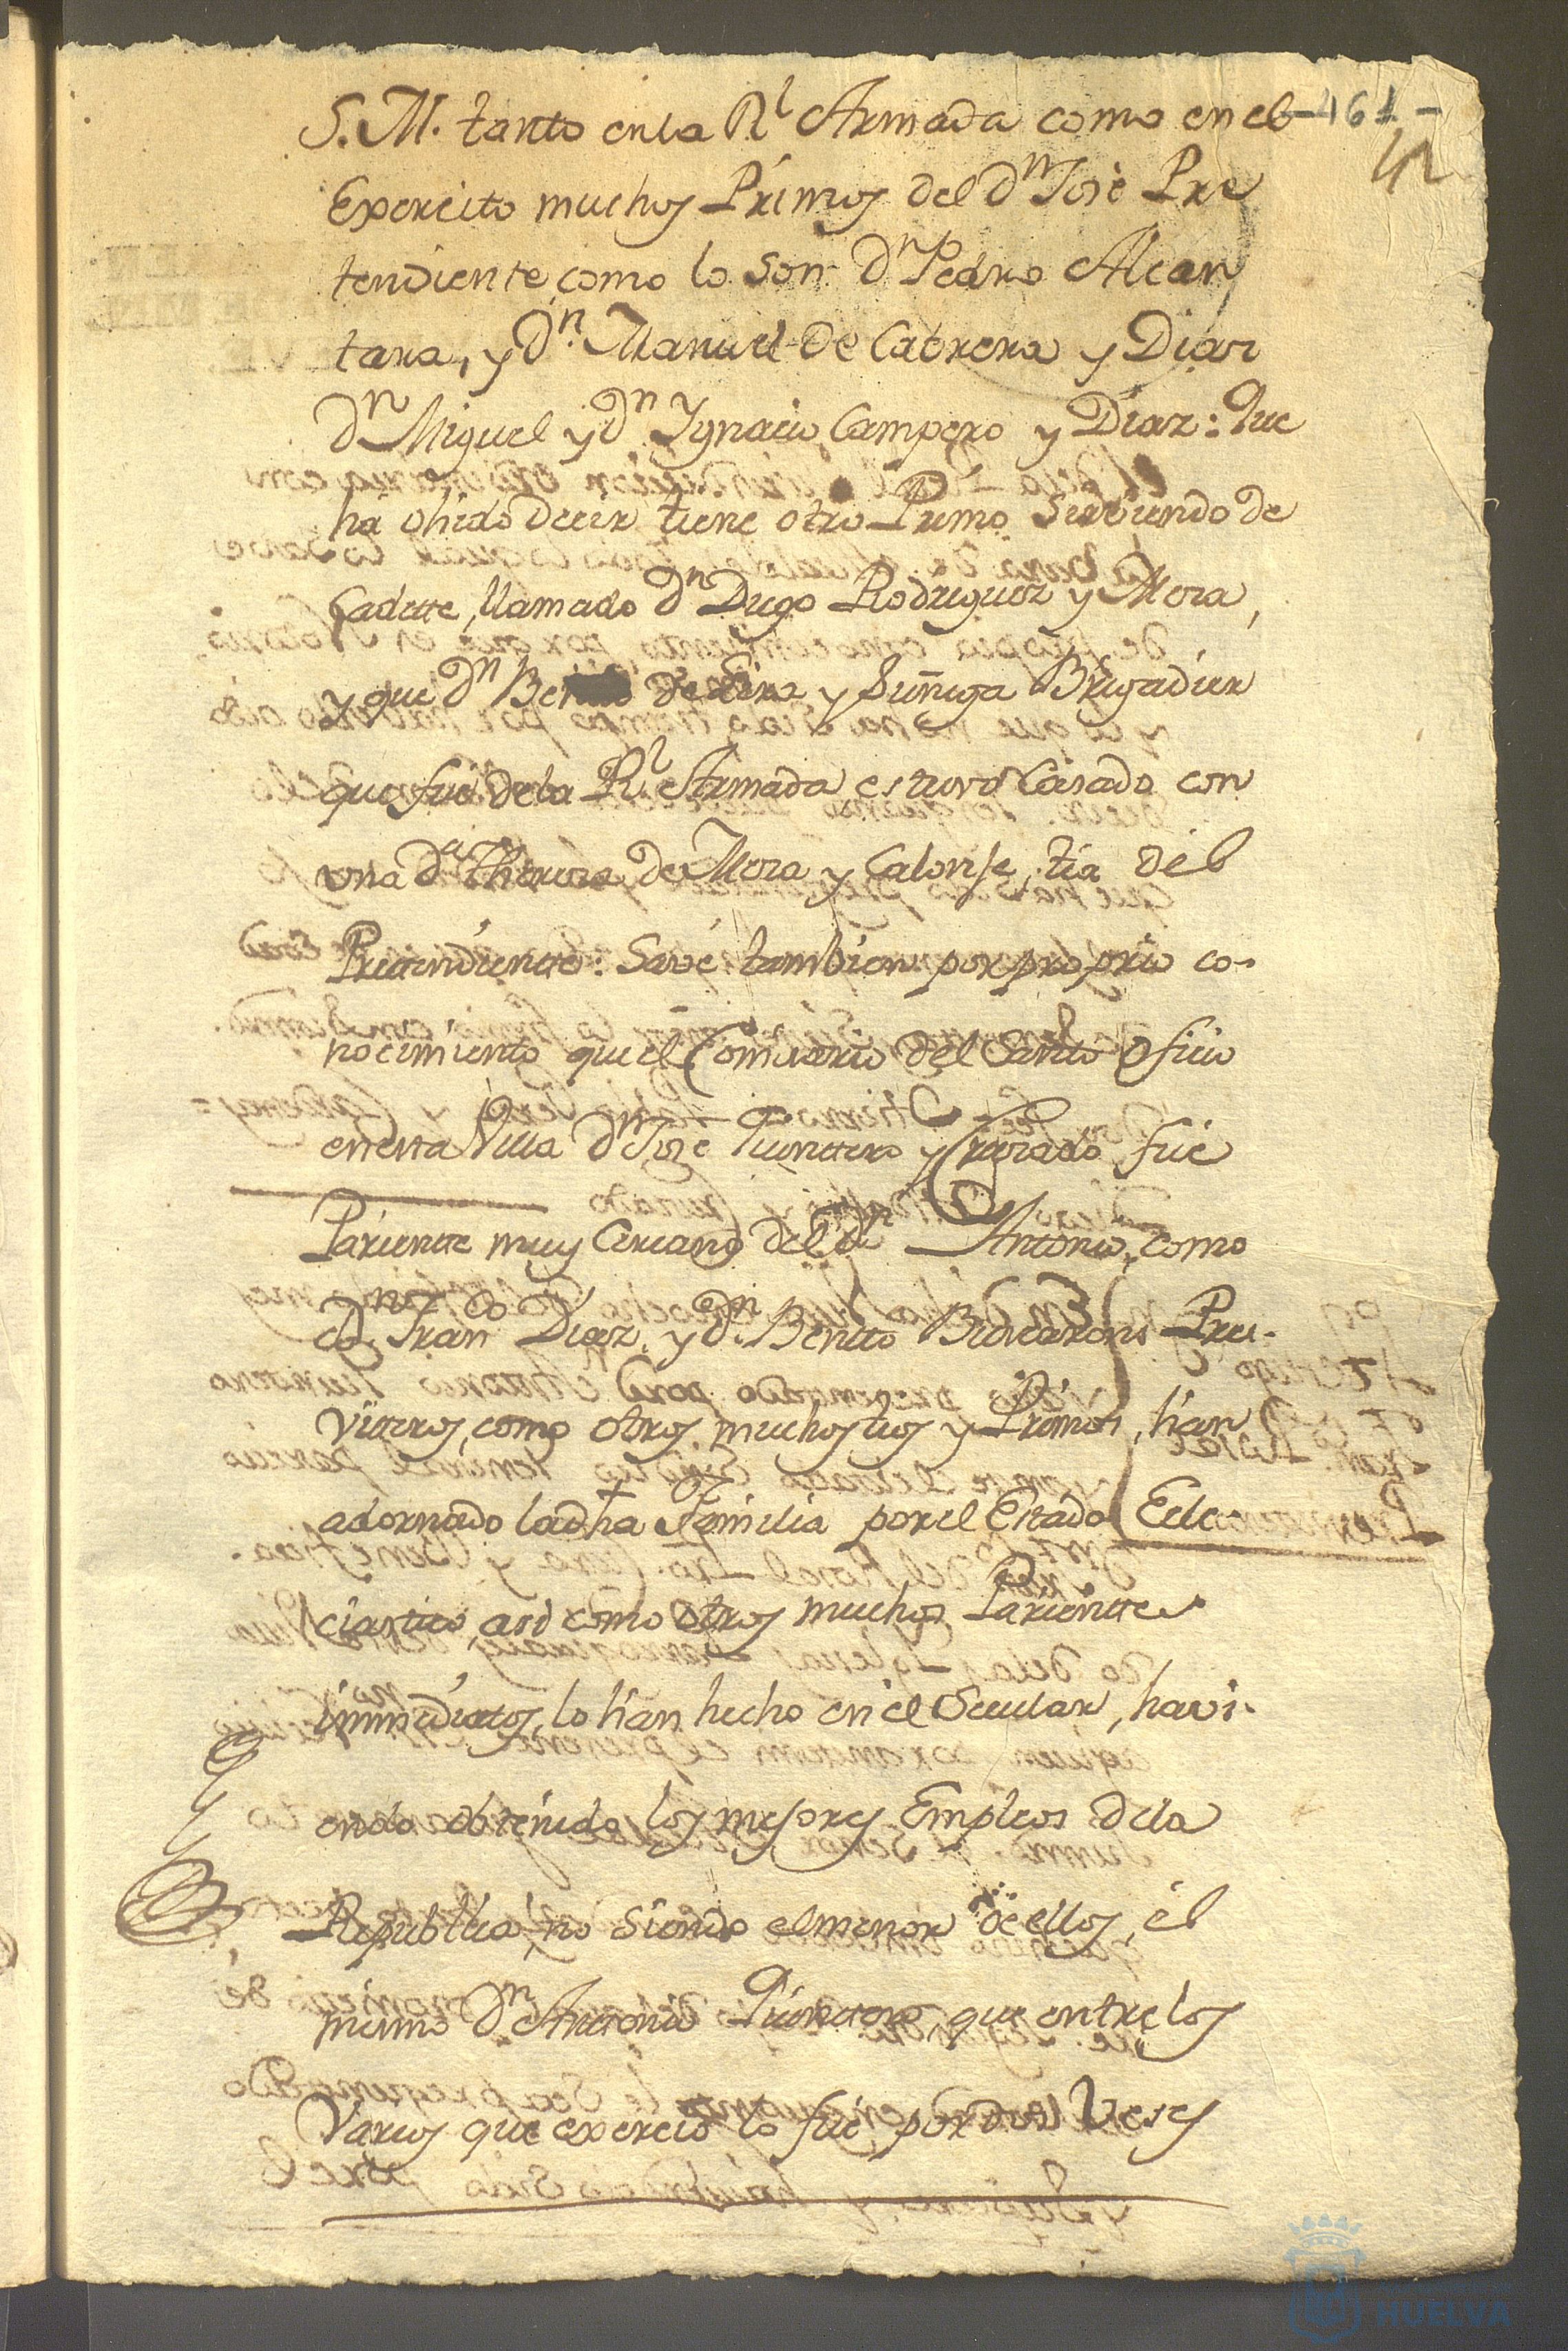 -461-
S. M. tanto en la Rl Armada como en el
Exercito muchos Primos del dn José Pre
tendiente, como lo son dn Pedro Alcan
tara, y dn. Manuel de Cabrera y Diaz
dn Miguel y dn Ygnacio Campero y Diaz: Que
ha ohido decir tiene otro Primo sirviendo de
Cadette, llamado dn Diego Rodriguez y Mora,
y que dn de Lira y Suñiga Brigadier
que fué de la Rl Armada estuvo Casado con
una da Theresa de Mora y Calonje, tia del
Pretendiente: Save tambien por proprio co-
nocimiento que el Comisario del Santo Oficio
en esta Villa dn José Quinttero y Cruzado fué
Pariente muy Cercano del dn Antonio, como
dn Franco Diaz, y dn. Benito Pres-
viteros, como otros muchos tios y Primos, han
adornado la dha Familia por el Estado Ecle-
ciastico, asi como otros muchos Parientes
immediatos, lo han hecho en el Secular, havi-
endo obtenido los mejores Empleos de la
Republica, no siendo el menor de ellos, el
mismo dn Antonio Quinttero, que entre los
Varios que exercio lo fué por dos Veses
HUELVA